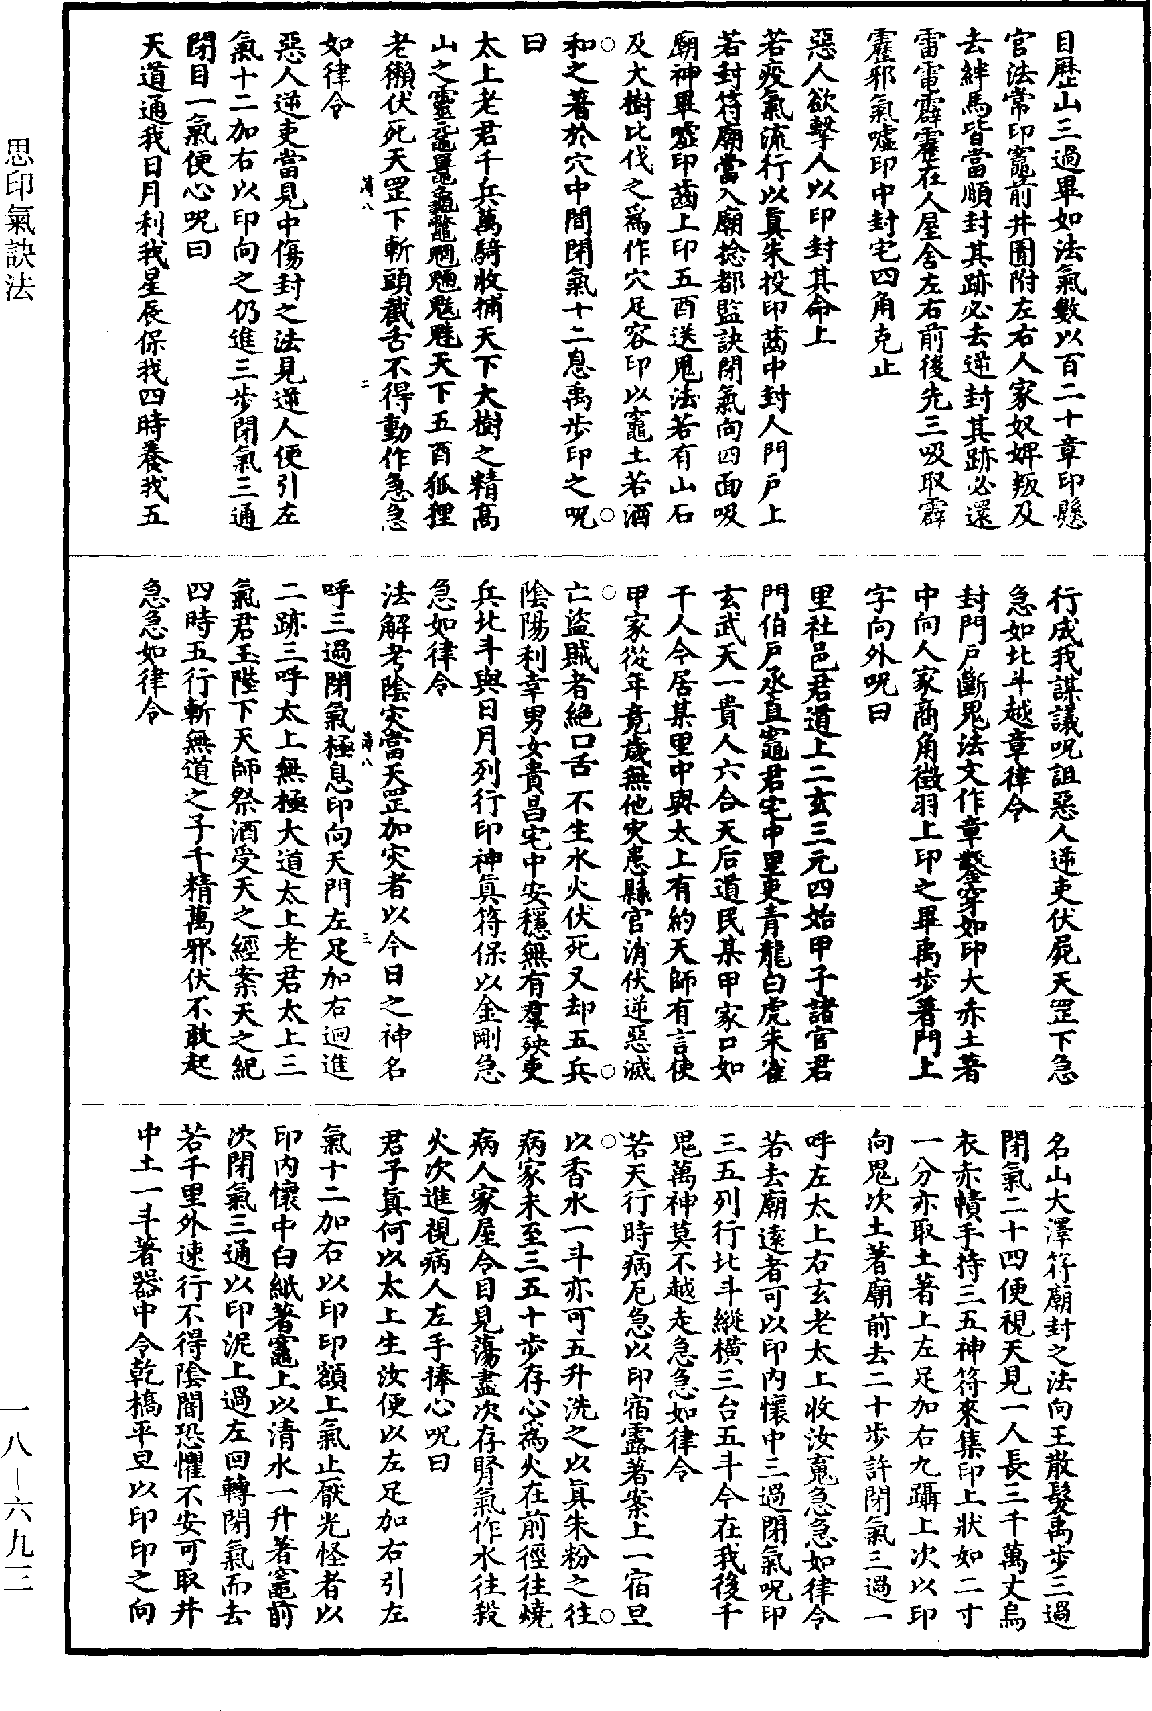 目歷山三過畢如法氣數以百二十章印懸
官法常印竈前井圊附左右人家奴婢叛及
去絆馬皆當順封其跡必去逆封其跡必還
雷電霹靂在人屋舍左右前後先三吸取霹
靂邪氣噓印中封宅四角克止
惡人欲擊人以印封其命上
若疫氣流行以真朱投印齒中封人門戶上
若封符廟當入廟捻都監訣閉氣向四面吸
廟神畢噓印齒上印五酉送鬼法若有山石
及大樹比伐之為作穴足容印以竈土若酒
和之著於穴中間閉氣十二息禹步印之呪
曰
太上老君千兵萬騎收捕天下大樹之精高
山之靈黿鼉龜鼈魍魎魃天下五酉狐狸
老獺伏死天罡下斬頭截舌不得動作急急
如律令
惡人逆吏當見中傷封之法見逆人便引左
氣十二加右以印向之仍進三步閉氣三通
閉目一氣便心呪曰
天道通我日月利我星辰保我四時養我五
行成我謀議呪詛惡人逆吏伏屍天罡下急
急如北斗越章律令
封門戶斷鬼法文作章鑿穿如印大赤土著
中向人家商角徵羽上印之畢禹步著門上
字向外呪曰
里社邑君道上二玄三元四始甲子諸官君
門伯戶丞直竈君宅中里吏青龍白虎朱雀
玄武天一貴人六合天后道民某甲家口如
干人今居某里中與太上有約天師有言使
甲家從年竟歲無他灾患縣官消伏逆惡滅
亡盜賊者絕口舌不生水火伏死又却五兵
陰陽利幸男女貴昌宅中安穩無有羣殃吏
兵北斗與日月列行印神真符保以金剛急
急如律令
法解考陰灾當天罡加灾者以今日之神名
呼三過閉氣極息印向天門左足加右迴進
二跡三呼太上無極大道太上老君太上三
氣君玉陛下天師祭酒受天之經案天之紀
四時五行斬無道之子千精萬邪伏不敢起
急急如律令
名山大澤符廟封之法向王散髮禹步三過
閉氣二十四便視天見一人長三千萬丈烏
衣赤幘手持三五神符來集印上狀如二寸
一分亦取土著上左足加右九躡上次以印
向鬼次土著廟前去二十步許閉氣三過一
呼左太上右玄老太上收汝䰟急急如律令
若去廟遠者可以印內懷中三過閉氣呪印
三五列行北斗縱橫三台五斗今在我後千
鬼萬神莫不越走急急如律令
若天行時病厄急以印宿露著案上一宿旦
以香水一斗亦可五升洗之以真朱粉之往
病家未至三五十步存心為火在前徑往燒
病人家屋令目見蕩盡次存腎氣作水往殺
火次進視病人左手捧心呪曰
君子真何以太上生汝便以左足加右引左
氣十二加右以印印額上氣止厭光怪者以
印內懷中白紙著竈上以清水一升著竈前
次閉氣三通以印泥上過左回轉閉氣而去
若千里外速行不得陰闇恐懼不安可取井
中土一斗著器中令乾槁平旦以印印之向
思印氣訣法
一八－六九二